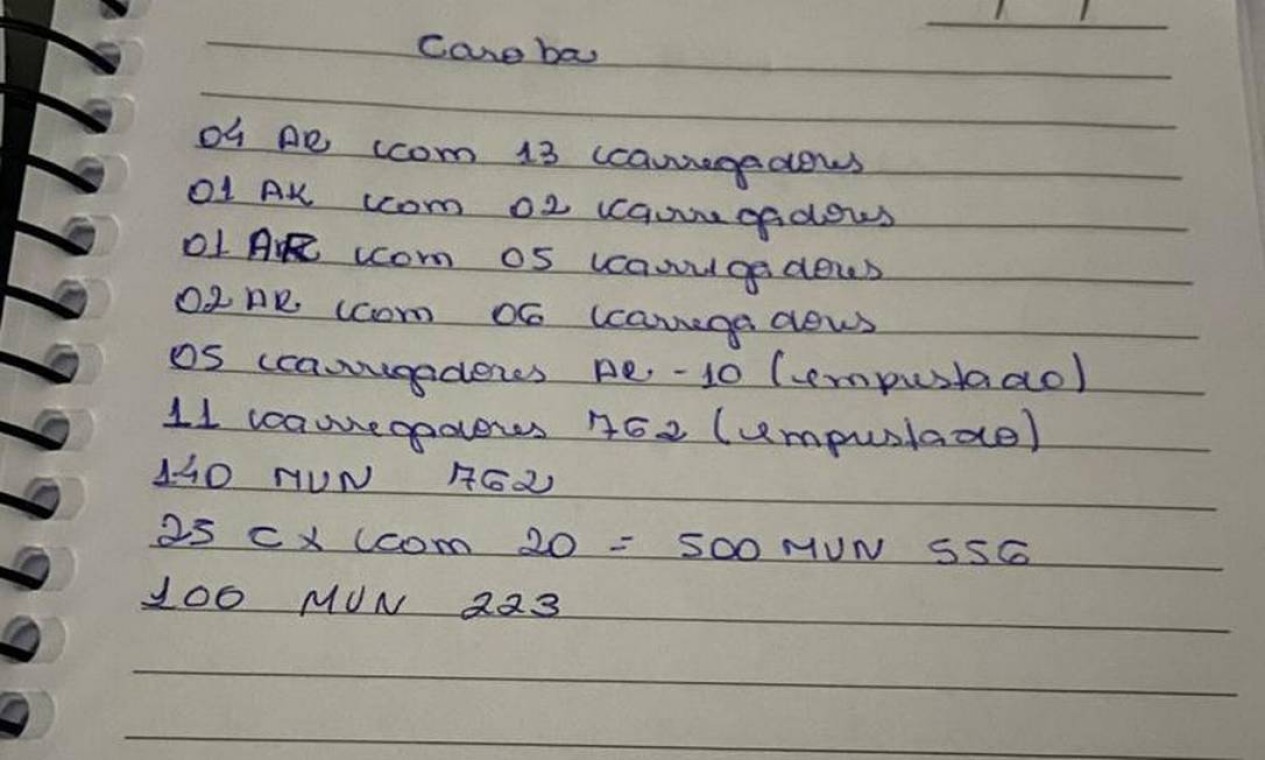 Caroba
04 AR com 13 carregadores
01 AK com 02 carregadores
01 AR com 05 carregadores
02 AR com 06 carregadores
05 carregadores AR-10 (emprestado)
11 carregadores 762 (emprestado)
140 MUN 762
25 CX com 20 = 500 MUN 556
100 MUN 223